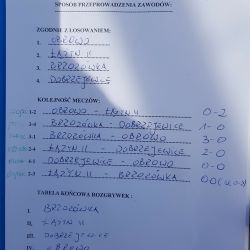 SPOSÓB PRZEPROWADZENIA ZAWODÓW:
ZGODNIE Z LOSOWANIEM:
1. OBROWO
2. ŁĄŻYN II
3. BRZOZÓWKA
4. DOBRZEJEWICE
KOLEJNOŚĆ MECZÓW:
1-2 OBROWO - ŁĄŻYN II 0-2
3-4 BRZOZÓWKA - DOBRZEJEWICE 1-0
BRZOZÓWKA - OBROWO 3-0
ŁĄŻYN II - DOBRZEJEWICE 2-0
DOBRZEJEWICE - OBROWO 0-0
2-3 ŁĄŻYN II - BRZOZÓWKA 0:0
TABELA KOŃCOWA ROZGRYWEK:
I. BRZOZÓWKA
II. ŁĄŻYN II
III. DOBRZEJEWICE
IV. OBROWO